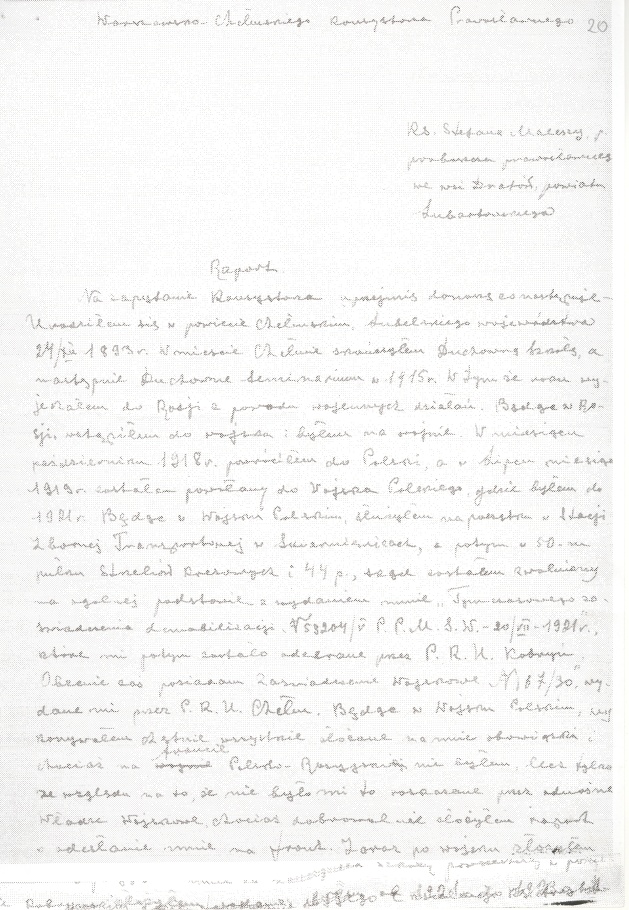 Warszawsko-Chełmskiego Konsystorza Prawosławnego 20
Ks. Stefana Maleszy, p.
proboszcza prawosławnego
we wsi Dratów, powiatu
Lubartowskiego
Raport.
Na zapytanie Konsystorza uprzejmie donoszę co następuje
Urodziłem się w powiecie Chełmskim, Lubelskiego województwa
24/XII 1893 r. W mieście Chełmie skończyłem Duchowną Szkołę, a
następnie Duchowne Seminarium w 1915 r. W tym że roku wy-
jechałem do Rosji z powodu wojennych działań. Będąc w Ro-
sji, wstąpiłem do wojska i byłem na wojnie. W miesiącu
październiku 1918 r. powróciłem do Polski, a w lipcu miesiącu
1919 r. zostałem powołany do Wojska Polskiego, gdzie byłem do
1921 r. Będąc w Wojsku Polskim, służyłem na początku w Stacji
Zbornej Transportowej w Skierniewicach, a potym w 50-m
pułku Strzelców Kresowych i 44 p., skąd zostałem zwolniony
na ogólnej podstawie z wydaniem mnie „Tymczasowego za-
świadczenia demobilizacji
które mi potym zostało odebrane przez P. K. U. Kobryń.
Obecnie zaś posiadam Zaświadczenie Wojskowe № 67/30, wy-
dane mi przez P. K. U. Chełm. Będąc w Wojsku Polskim, wy-
konywałem chętnie wszystkie złożone na mnie obowiązki i
froncie
chociaż na Polsko-Rosyjskim nie byłem, lecz tylko
ze względu na to, że nie było mi to rozkazane przez odnośne
Władze Wojskowe, chociaż dobrowolnie złożyłem raport
o odesłanie mnie na front. Zaraz po wojsku